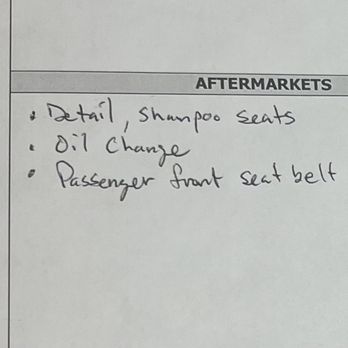 AFTERMARKETS
• Detail, Shampoo seats
• Oil Change
• Passenger front seat belt